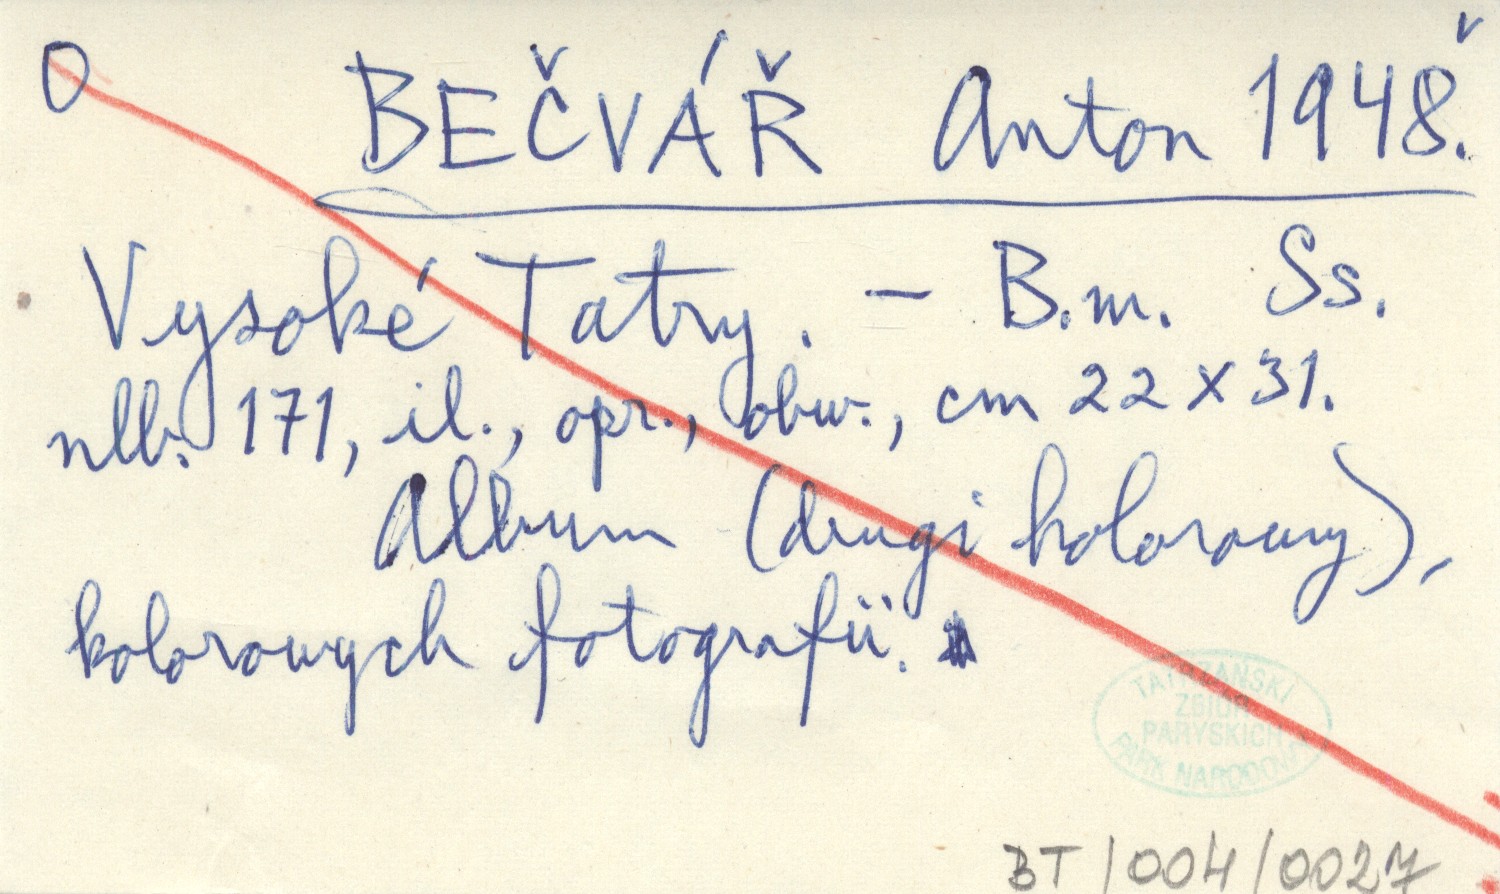 O BEČVÁŘ Anton 1948.
Vysoké Tatry. – B.m. Ss.
nlb. 171, il., opr., obw., cm 22 x 31.
Album (drugi kolorowy),
kolorowych fotografii.
TATRZAŃSKI
ZBIÓR
PARYSKICH
PARK NARODOWY
BT/004/0027